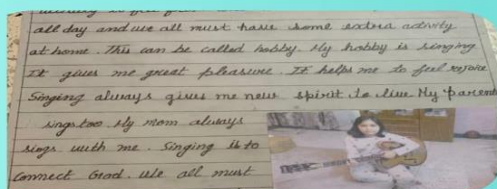 all day and we all must have some extra activity
at home. This can be called hobby. My hobby is singing
It gives me great pleasure. It helps me to feel rejoice
Singing always gives me new spirit to live My parent
sings too. My mom always
sings with me. Singing is to
connect God. We all must